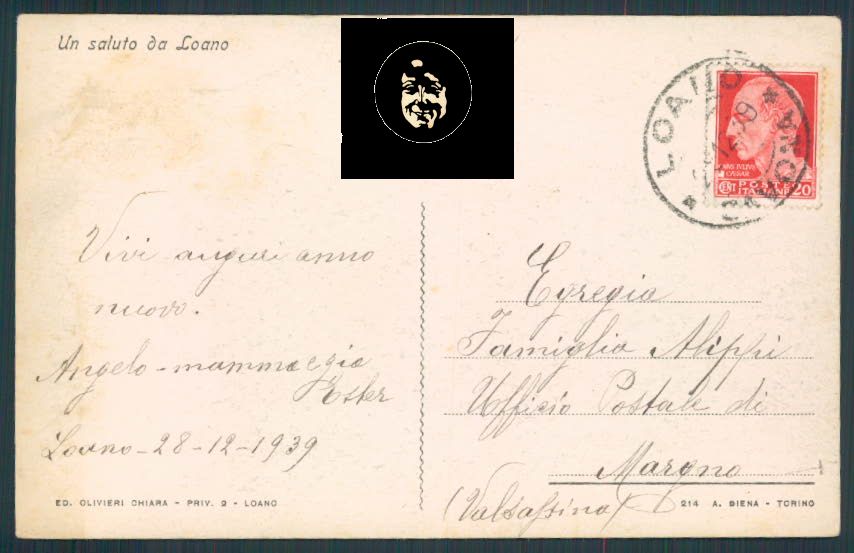 Un saluto da Loano
LOANO * SAVONA *
CAIVS IVLIVS
CAESAR
CENT POSTE ITALIANE 20
Vivi auguri anno
nuovo.
Angelo - mamma e zia
Ester
Loano - 28 - 12 - 1939
Egregia
Famiglia Alippi
Ufficio Postale di
Margno
(Valsassina)
ED. OLIVIERI CHIARA - PRIV. 2 - LOANO
214 A. DIENA - TORINO